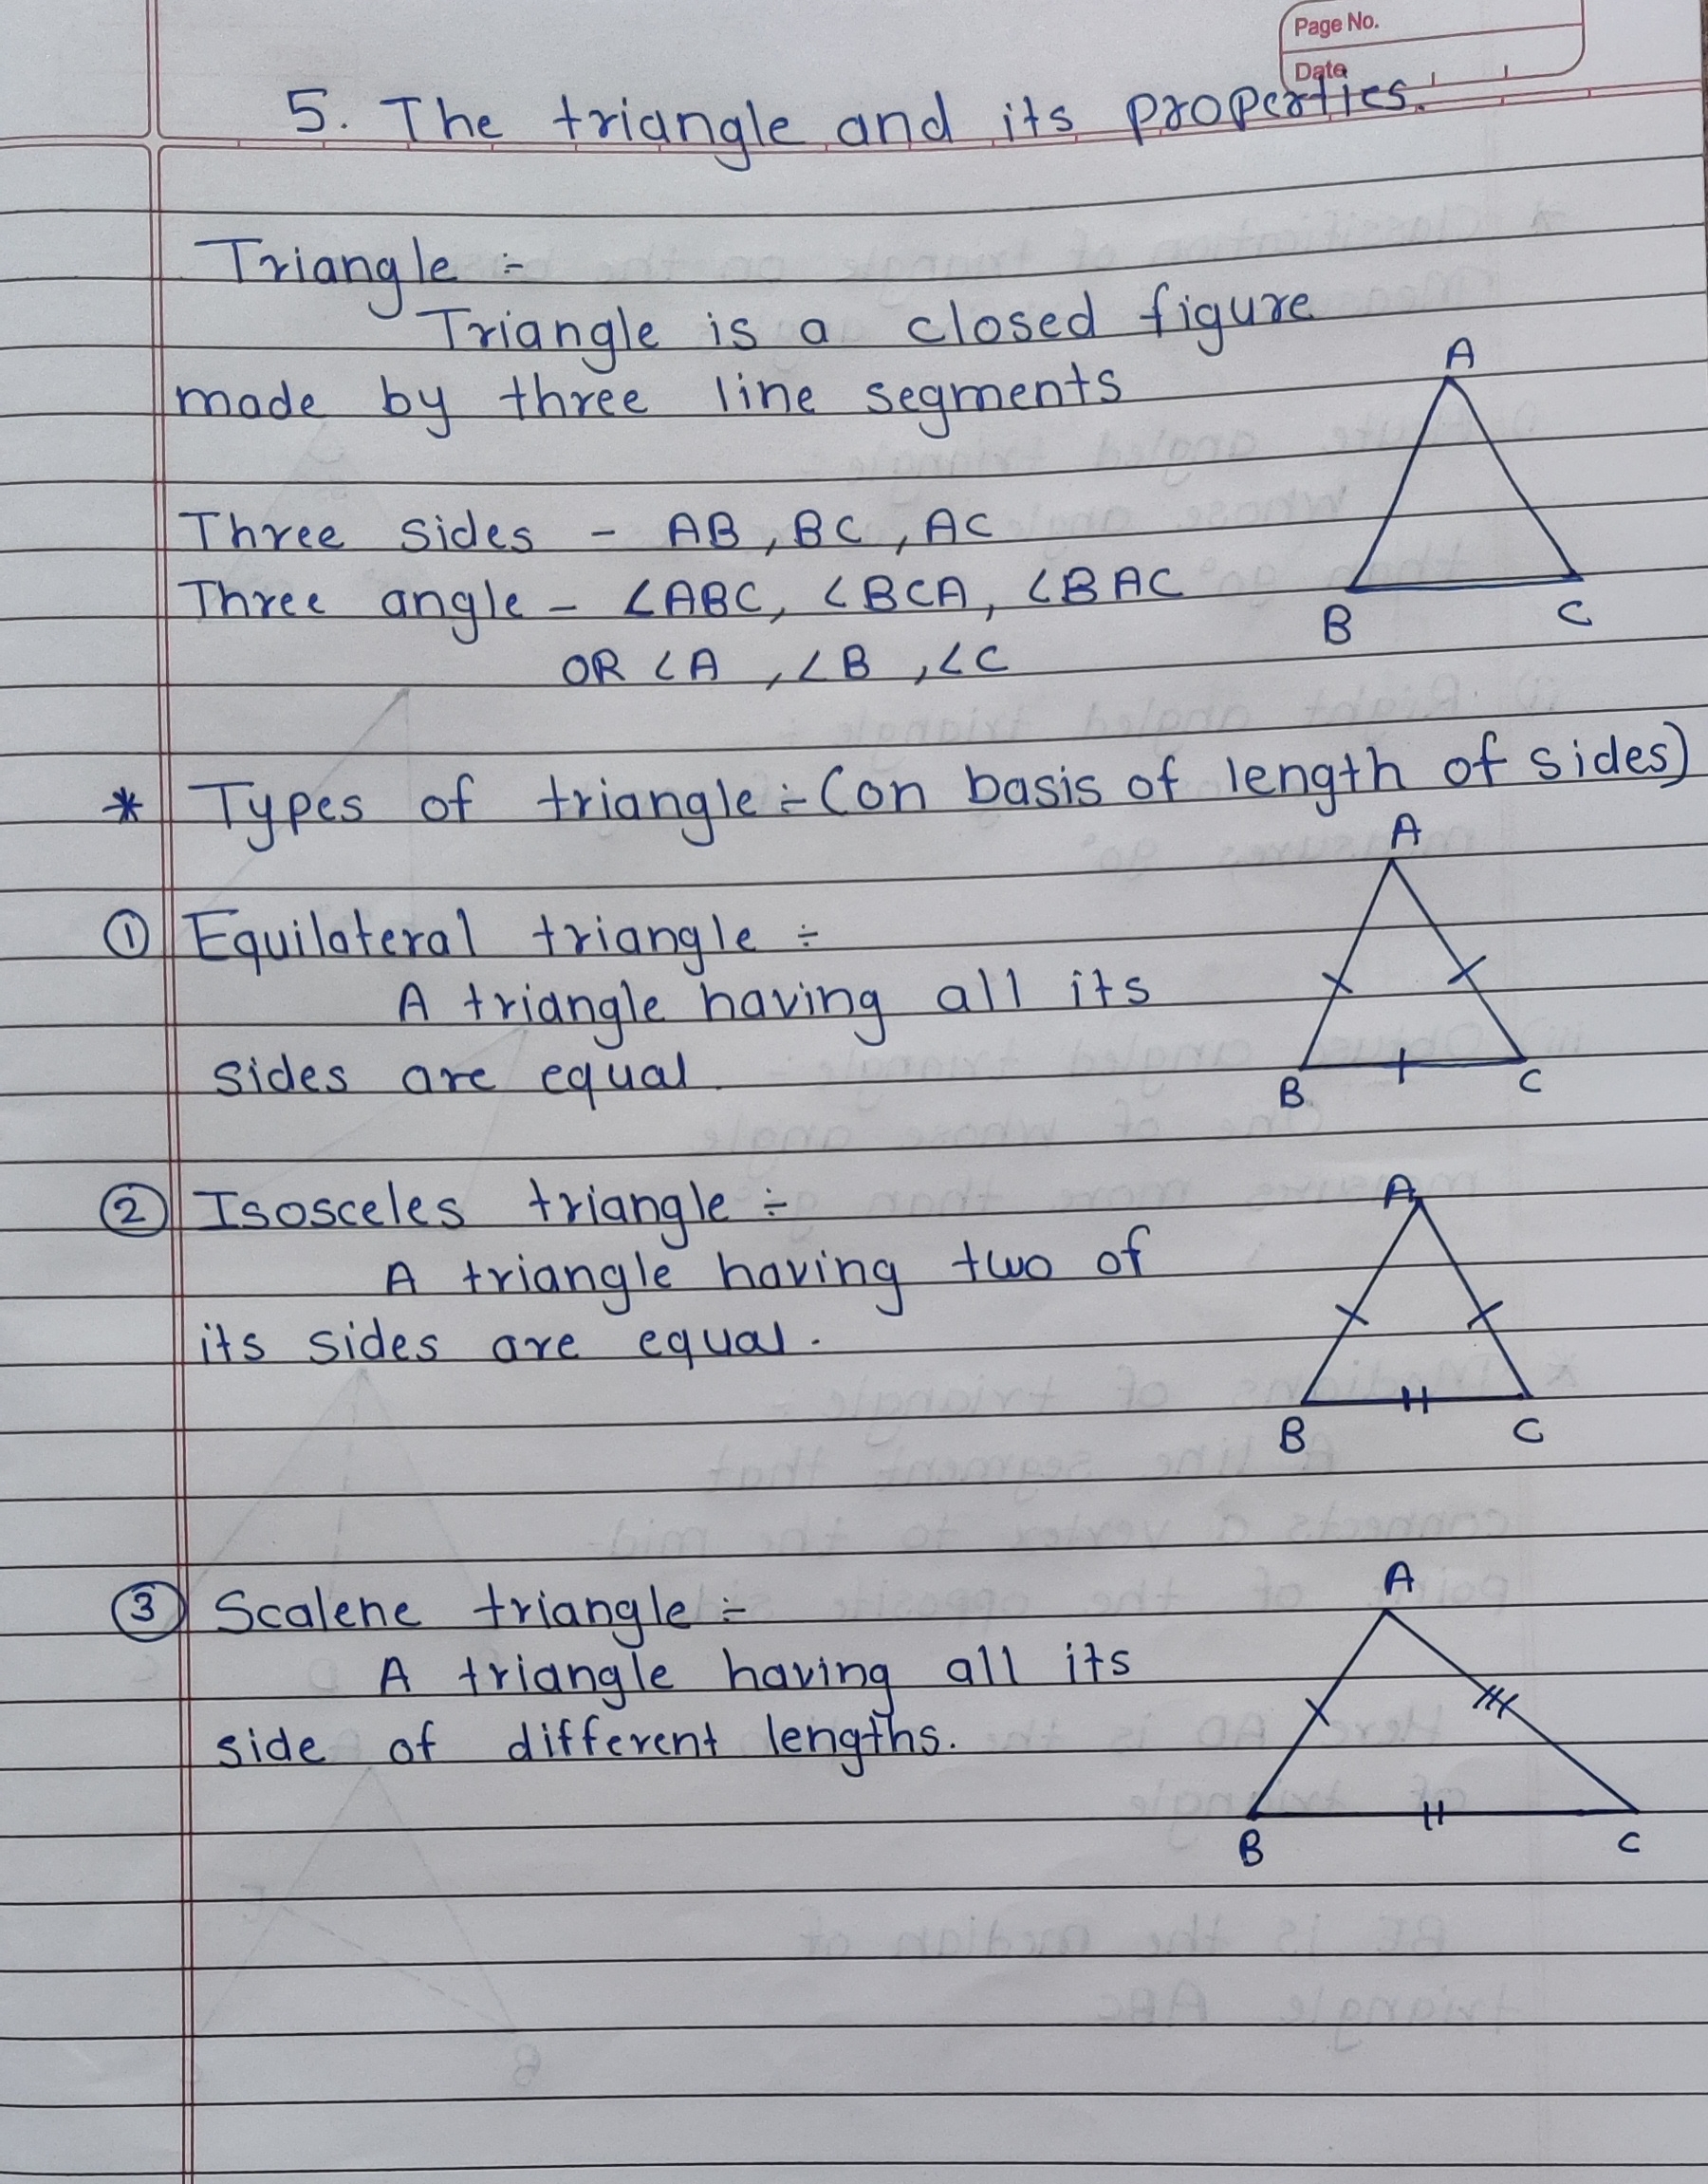 Page No.
Date
5. The triangle and its properties.
Triangle :-
Triangle is a closed figure
made by three line segments
A
B C
Three sides - AB, BC, AC
Three angle - ∠ABC, ∠BCA, ∠BAC
OR ∠A, ∠B, ∠C
* Types of triangle :- (on basis of length of sides)
① Equilateral triangle ÷
A triangle having all its
sides are equal.
A
B C
② Isosceles triangle ÷
A triangle having two of
its sides are equal.
A
B C
③ Scalene triangle :-
A triangle having all its
side of different lengths.
A
B C